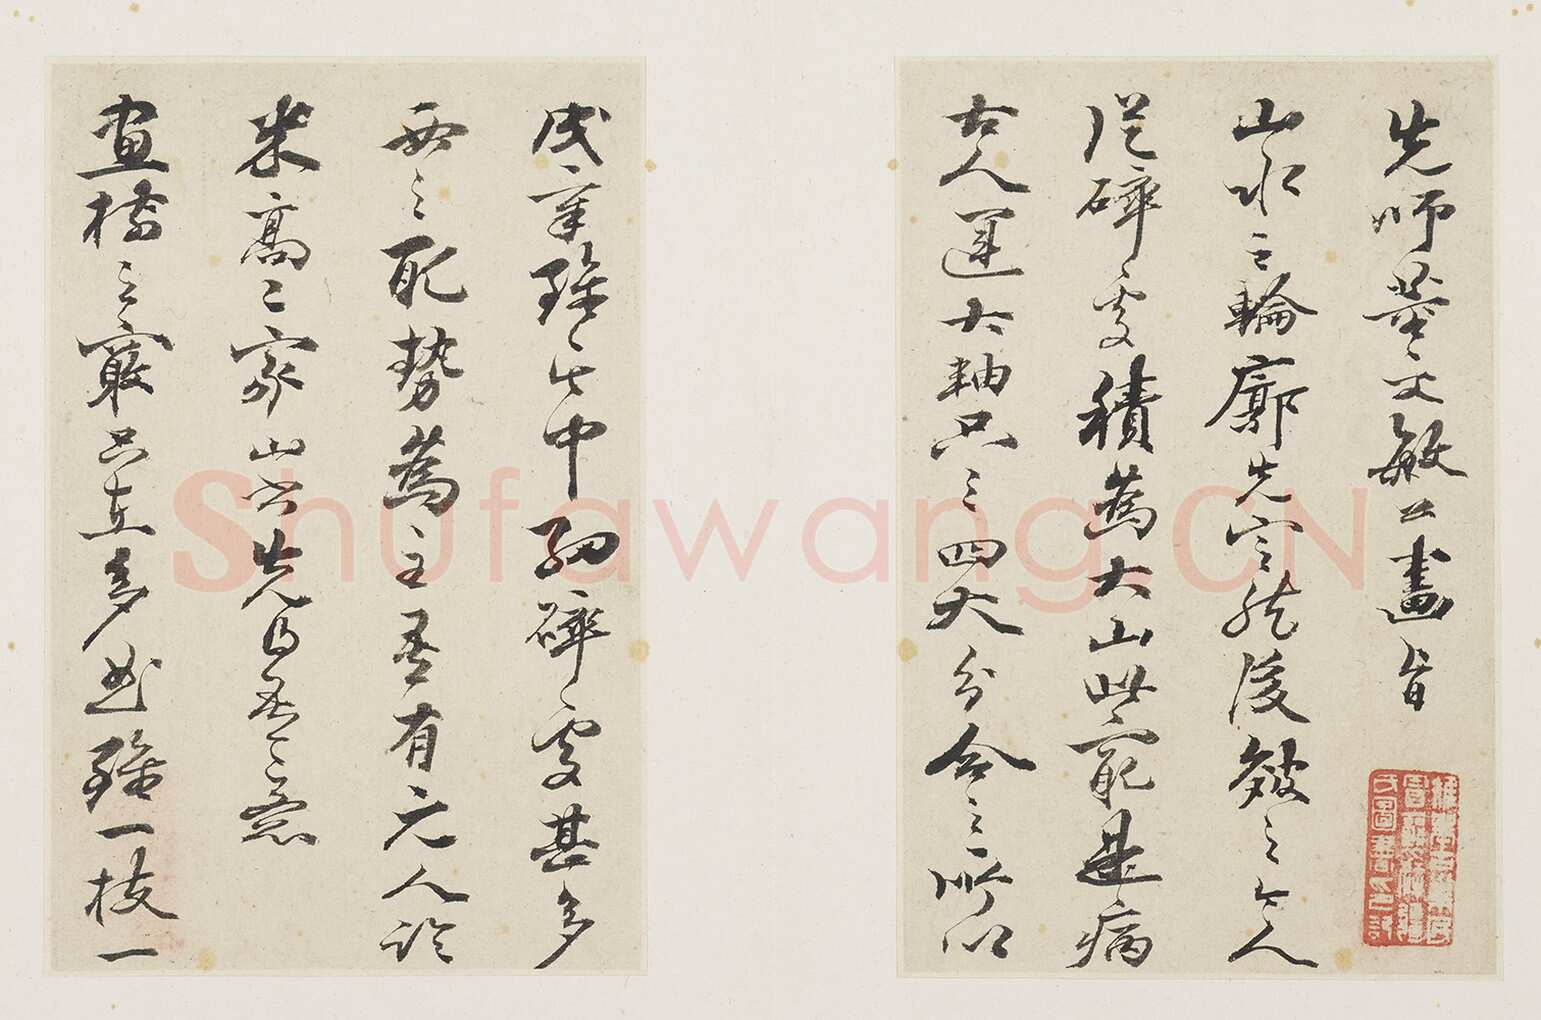 先師董文敏公畫旨
山水之輪廓先定然後皴之今人
從碎處積為大山此最是病
古人運大軸只三四大分合之所以
成章雖其中細碎處甚多
要之取勢為主吾有元人論
米高二家山書先得吾意
畫樹之竅只在多曲雖一枝一
ShufawangCN